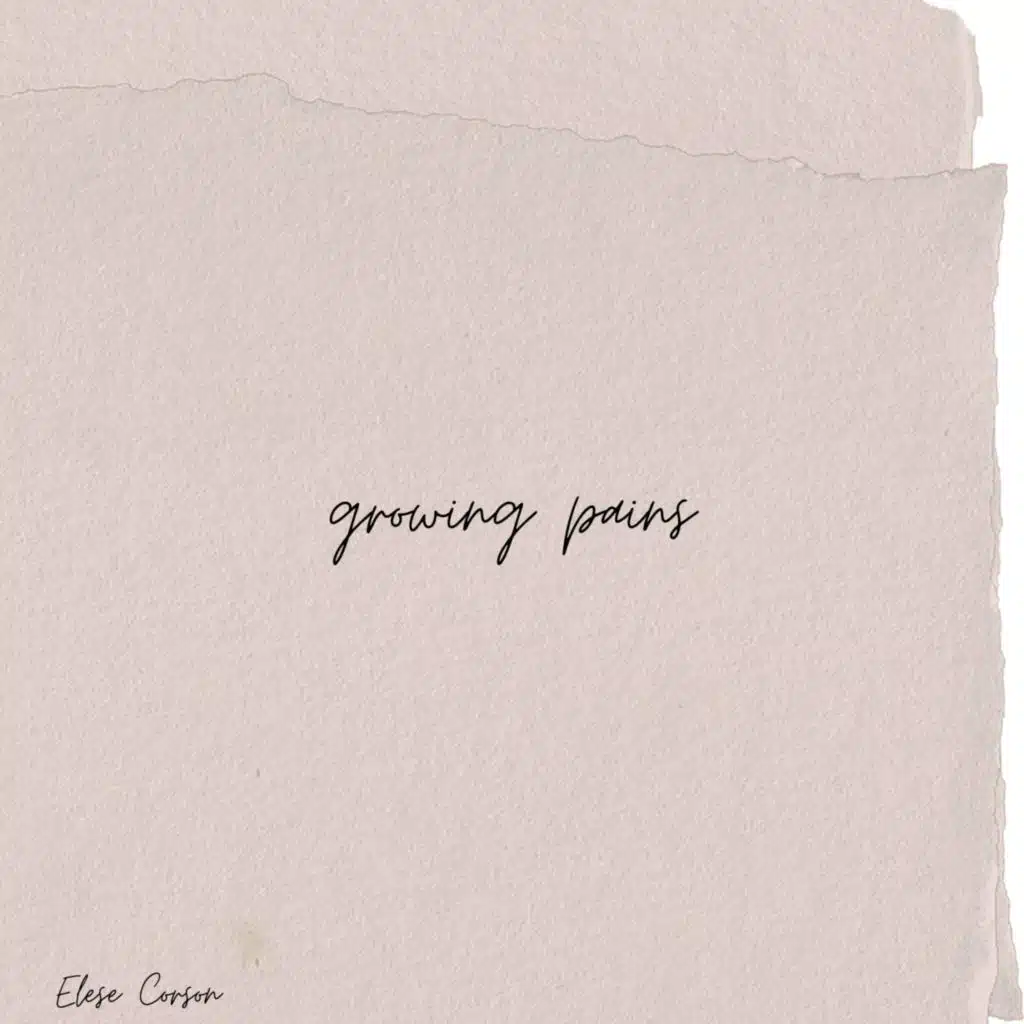 growing pains
Elese Corson